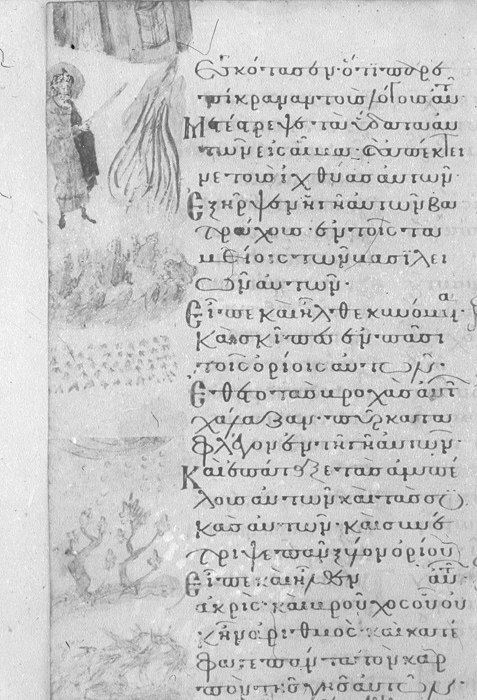 ἐσκότασεν· ὅτι παρε
πίκραναν τοὺς λόγους αὐτ
Μετέστρεψε τὰ ὕδατα αὐ
τῶν εἰς αἷμα· καὶ ἀπέκτει
νε τοὺς ἰχθύας αὐτῶν·
Ἐξῆρψεν ἡ γῆ αὐτῶν βα
τράχους· ἐν τοῖς τα
μείοις τῶν βασιλέ
ων αὐτῶν·
Εἶπε καὶ ἦλθε κυνόμυια·
καὶ σκνῖπες ἐν πᾶσι
τοῖς ὁρίοις αὐτῶν·
Ἔθετο τὰς βροχὰς αὐτ
χάλαζαν· πῦρ κατα
φλέγον ἐν τῇ γῇ αὐτῶν·
Καὶ ἐπάταξε τὰς ἀμπέ
λους αὐτῶν καὶ τὰς συ
κὰς αὐτῶν· καὶ συνέ
τριψε πᾶν ξύλον ὁρίου
Εἶπε καὶ ἦλθεν αὐτ
ἀκρὶς· καὶ βροῦχος οὗ οὐ
κ ἦν ἀριθμός· καὶ κατέ
φαγε πάντα τὸν καρ
πὸν τῆς γῆς αὐτῶν·